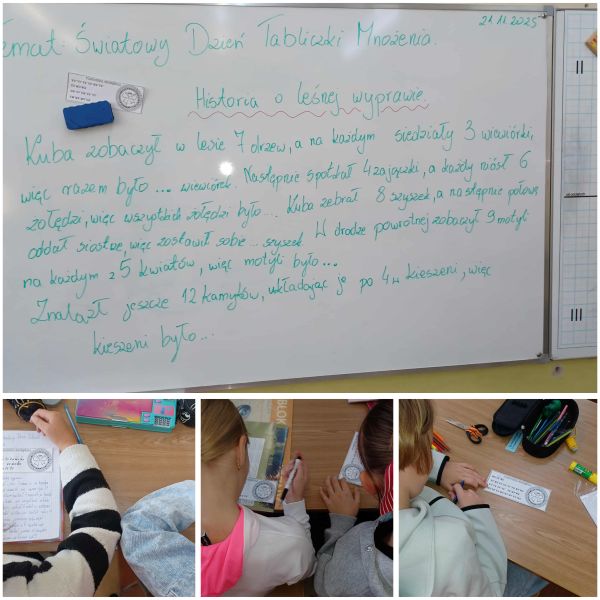 21.11.2025
emat: Światowy Dzień Tabliczki Mnożenia.
Historia o leśnej wyprawie
Kuba zobaczył w lesie 7 drzew, a na każdym siedziały 3 wiewiórki,
więc razem było ... wiewiórek. Następnie spotkał 4 zajączki, a każdy niósł 6
żołędzi, więc wszystkich żołędzi było ... Kuba zebrał 8 szyszek, a następnie połowę
oddał siostrze, więc zostawił sobie ... szyszek. W drodze powrotnej zobaczył 9 motyli
na każdym z 5 kwiatów, więc motyli było ...
Znalazł jeszcze 12 kamyków, układając je po 4 w kieszeni, więc
kieszeni było ...
II
III
BLOK